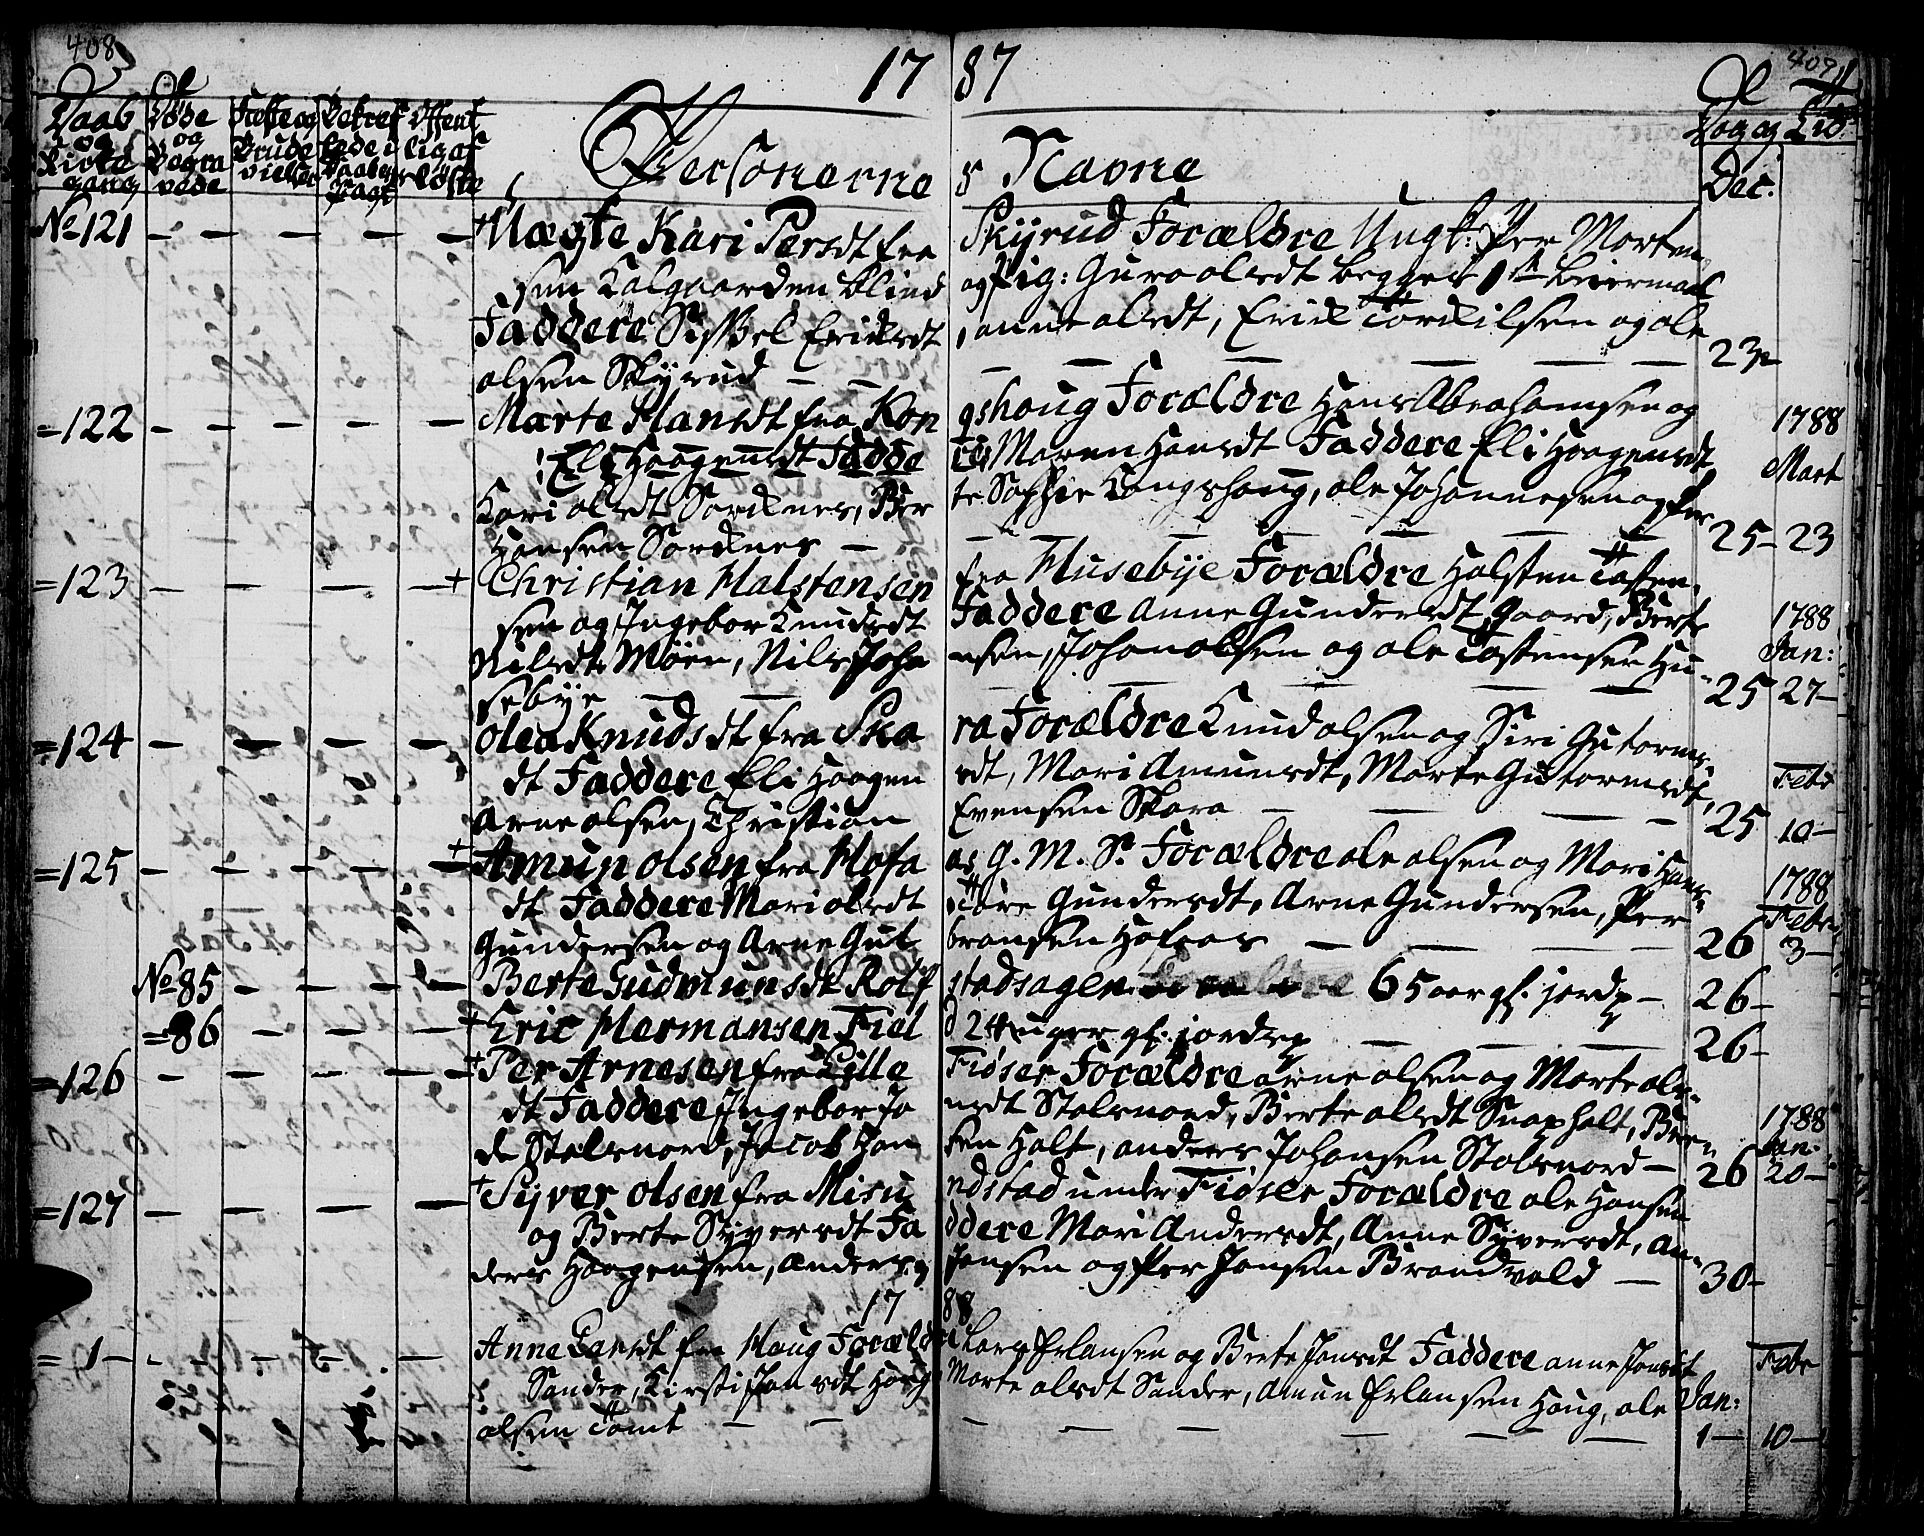 408
17 87
409
Daab og Kirke gang
Døde og Begra vede
Feste og Brude vielser
Offent lig af løste
Personerne s Navne
Dag og Tid
Dec:
No 121 Kari Persdt fra Skyrud Forældre Ungk: Per Morten
sen Kalgaarden Blind og Pig: Guro olsdt begges 1ste Leiermaal
Faddere Sissel Eriksdt, anne olsdt, Erik Torkilsen og ole
olsen Skyrud 23
= 122 Marte Hansdt fra Kongshoug Forældre Hans Abrahamsen og
Maren Hansdt Faddere Eli Haagensdt
Kari olsdt Sordnes, Per te Sophie Kongshoug, ole Johannesen og Per
Hansen Sordnes 25 - 1788 Mart 23
= 123 Christian Halstensen fra Husebye Forældre Halsten Tosten
sen og Ingebor Knudsdt Faddere Anne Gundersdt Gaard, Berte
Nilsdt Moen, Nils Joha nsen, Johan olsen og ole Tostensen Hu
sebye 25 1788 Jan: 27 -
= 124 olea Knudsdt fra Skara Forældre Knud olsen og Siri Gutorms
dt Faddere Eli Haagen sdt, Mari Amunsdt, Marte Gutormsdt,
Arne olsen, Christian Evensen Skara 25 Febr 10 -
= 125 Amun olsen fra Hofa as G. M. S. Forældre ole olsen og Mari Hans
dt Faddere Mari olsdt Tore Gundersdt, Arne Gundersen, Per
Gundersen og Arne Gul bransen Hofaas 26 1788 Febr 3 -
No 85 Berte Gudmunsdt Rolf stadsagen 65 aar gl. jordp - 26 -
= 86 Eric Hermansen Fiel d 24 uger gl. jordp 26 -
= 126 Per Arnesen fra Lille Fiøser Forældre arne olsen og Marte ols
dt Faddere Ingebor Jo nsdt Stolsnord, Berte olsdt Snapholt,
de Stolsnord, Jacob Han sen Holt, anders Johansen Stolsnord - 26 1788 Jan. 20 -
= 127 Syver olsen fra Misu ndstad under Fiøser Forældre ole Hansen
og Berte Syversdt Fa ddere Mari Andersdt, Anne Syversdt, An
ders Haagensen, anders Jonsen og Per Jonsen Brandvold - 30 -
17 88
= 1 - Anne Larsdt fra Haug Forældre Lars Erlansen og Berte Jonsdt Faddere anne Jonsdt
Sander, Kirsti Jonsdt Haug Marte olsdt Sander, Amun Erlansen Haug, ole
olsen Tomt Jan: 1 - Febr 10 -